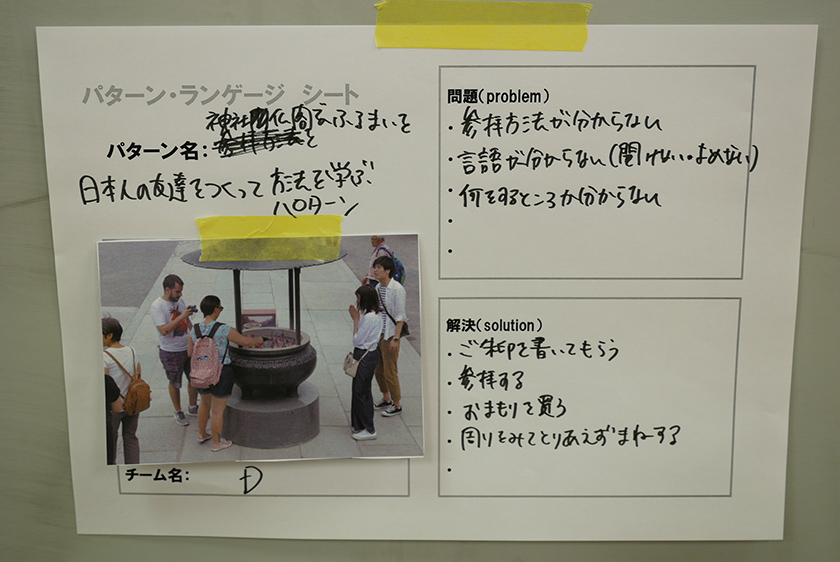 パターン・ランゲージ シート
神社仏閣でふるまいを
パターン名: と
日本人の友達をつくって 方法を学ぶ
パターン
チーム名: D
問題(problem)
・参拝方法が分からない
・言語が分からない(聞けない・よめない)
・何をするところか分からない
・
・
解決(solution)
・ご朱印を書いてもらう
・参拝する
・おまもりを買う
・周りをみてとりあえずまねする
・